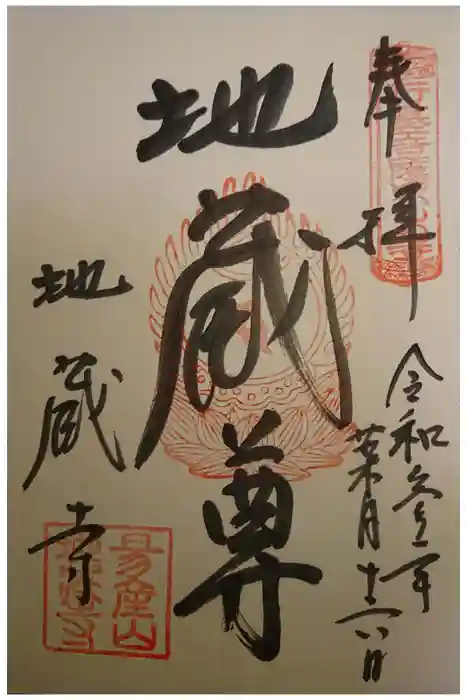 奉拝
令和参年
葉月十六日
地蔵尊
地蔵寺
易産山